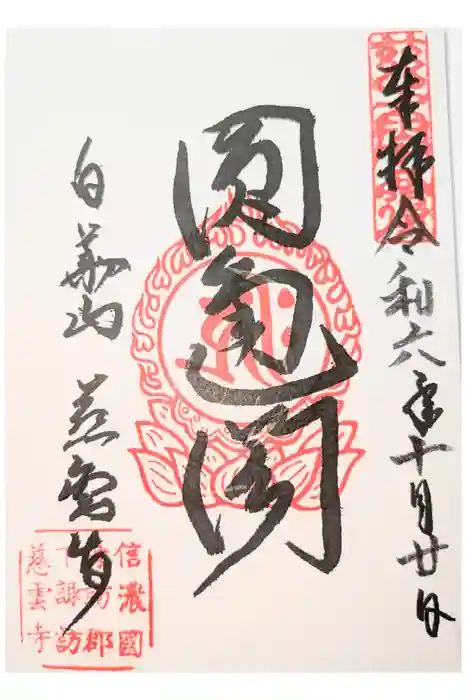 奉拝 令和六年十月廿日
圓通閣
白華山 慈雲寺
信濃國
諏訪郡
下諏訪
慈雲寺